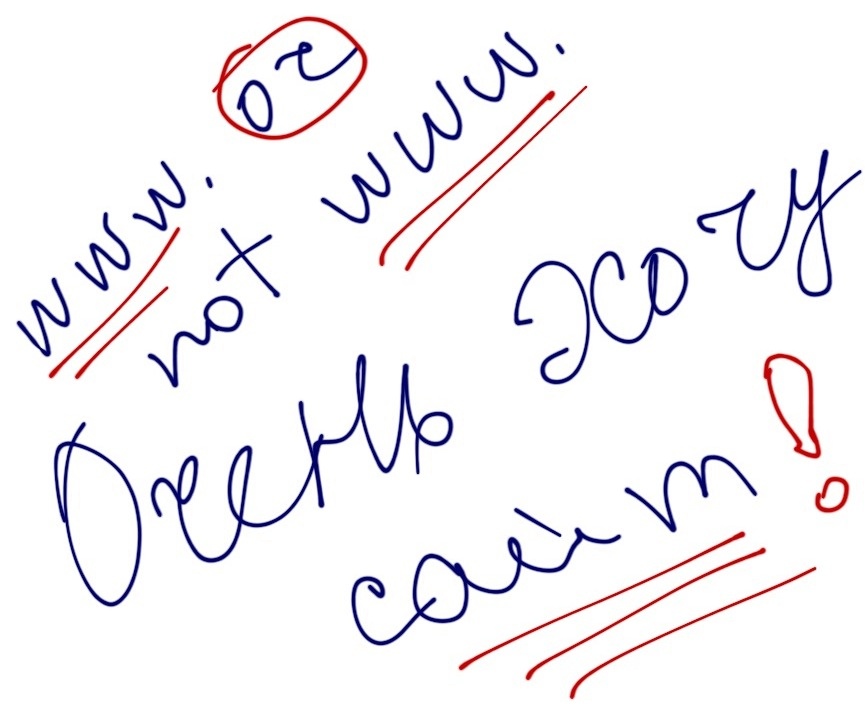 www. or
not www.
Очень хочу
сайт!